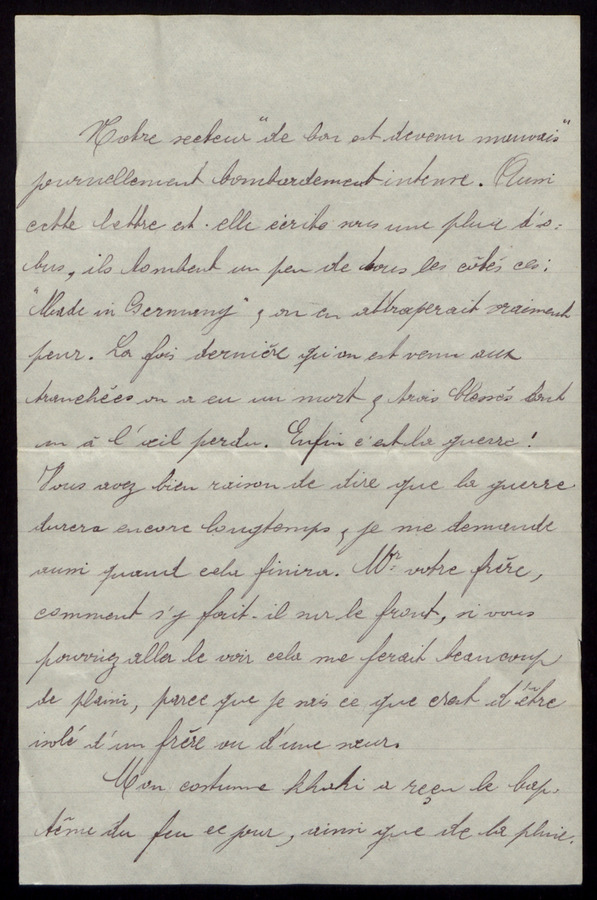 Notre secteur "de bon est devenu mauvais"
journellement bombardement intense. Aussi
cette lettre est-elle écrite sous une pluie d'o-
bus, ils tombent un peu de tous les côtés ces:
"Made in Germany", on en attraperait vraiment
peur. La fois dernière qu'on est venu aux
tranchées on a eu un mort, trois blessés dont
un à l'œil perdu. Enfin c'est la guerre!
Vous avez bien raison de dire que la guerre
durera encore longtemps, je me demande
aussi quand cela finira. Mr. votre frère,
comment s'y fait-il sur le front, si vous
pouviez aller le voir cela me ferait beaucoup
de plaisir, parce que je sais ce que c'est d'être
isolé d'un frère ou d'une sœur.
Mon costume khaki a reçu le bap-
tême du feu ce jour, ainsi que de la pluie.